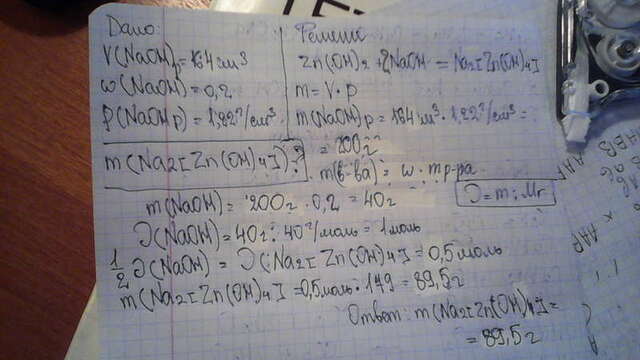 Дано:
V(NaOH)р=164 см³
w(NaOH)=0,2
ρ(NaOH р)=1,22г/см³
m(Na₂[Zn(OH)₄])-?
Решение
Zn(OH)₂+2NaOH=Na₂[Zn(OH)₄]
m=V·ρ
m(NaOH)р=164 см³·1,22г/см³=
=200г
m(в-ва)=w·mр-ра
m(NaOH)=200г·0,2=40г
ν=m:Mr
ν(NaOH)=40г:40г/моль=1моль
1/2ν(NaOH)=ν(Na₂[Zn(OH)₄]=0,5моль
m(Na₂[Zn(OH)₄]=0,5моль·179=89,5г
Ответ: m(Na₂[Zn(OH)₄]=
=89,5г